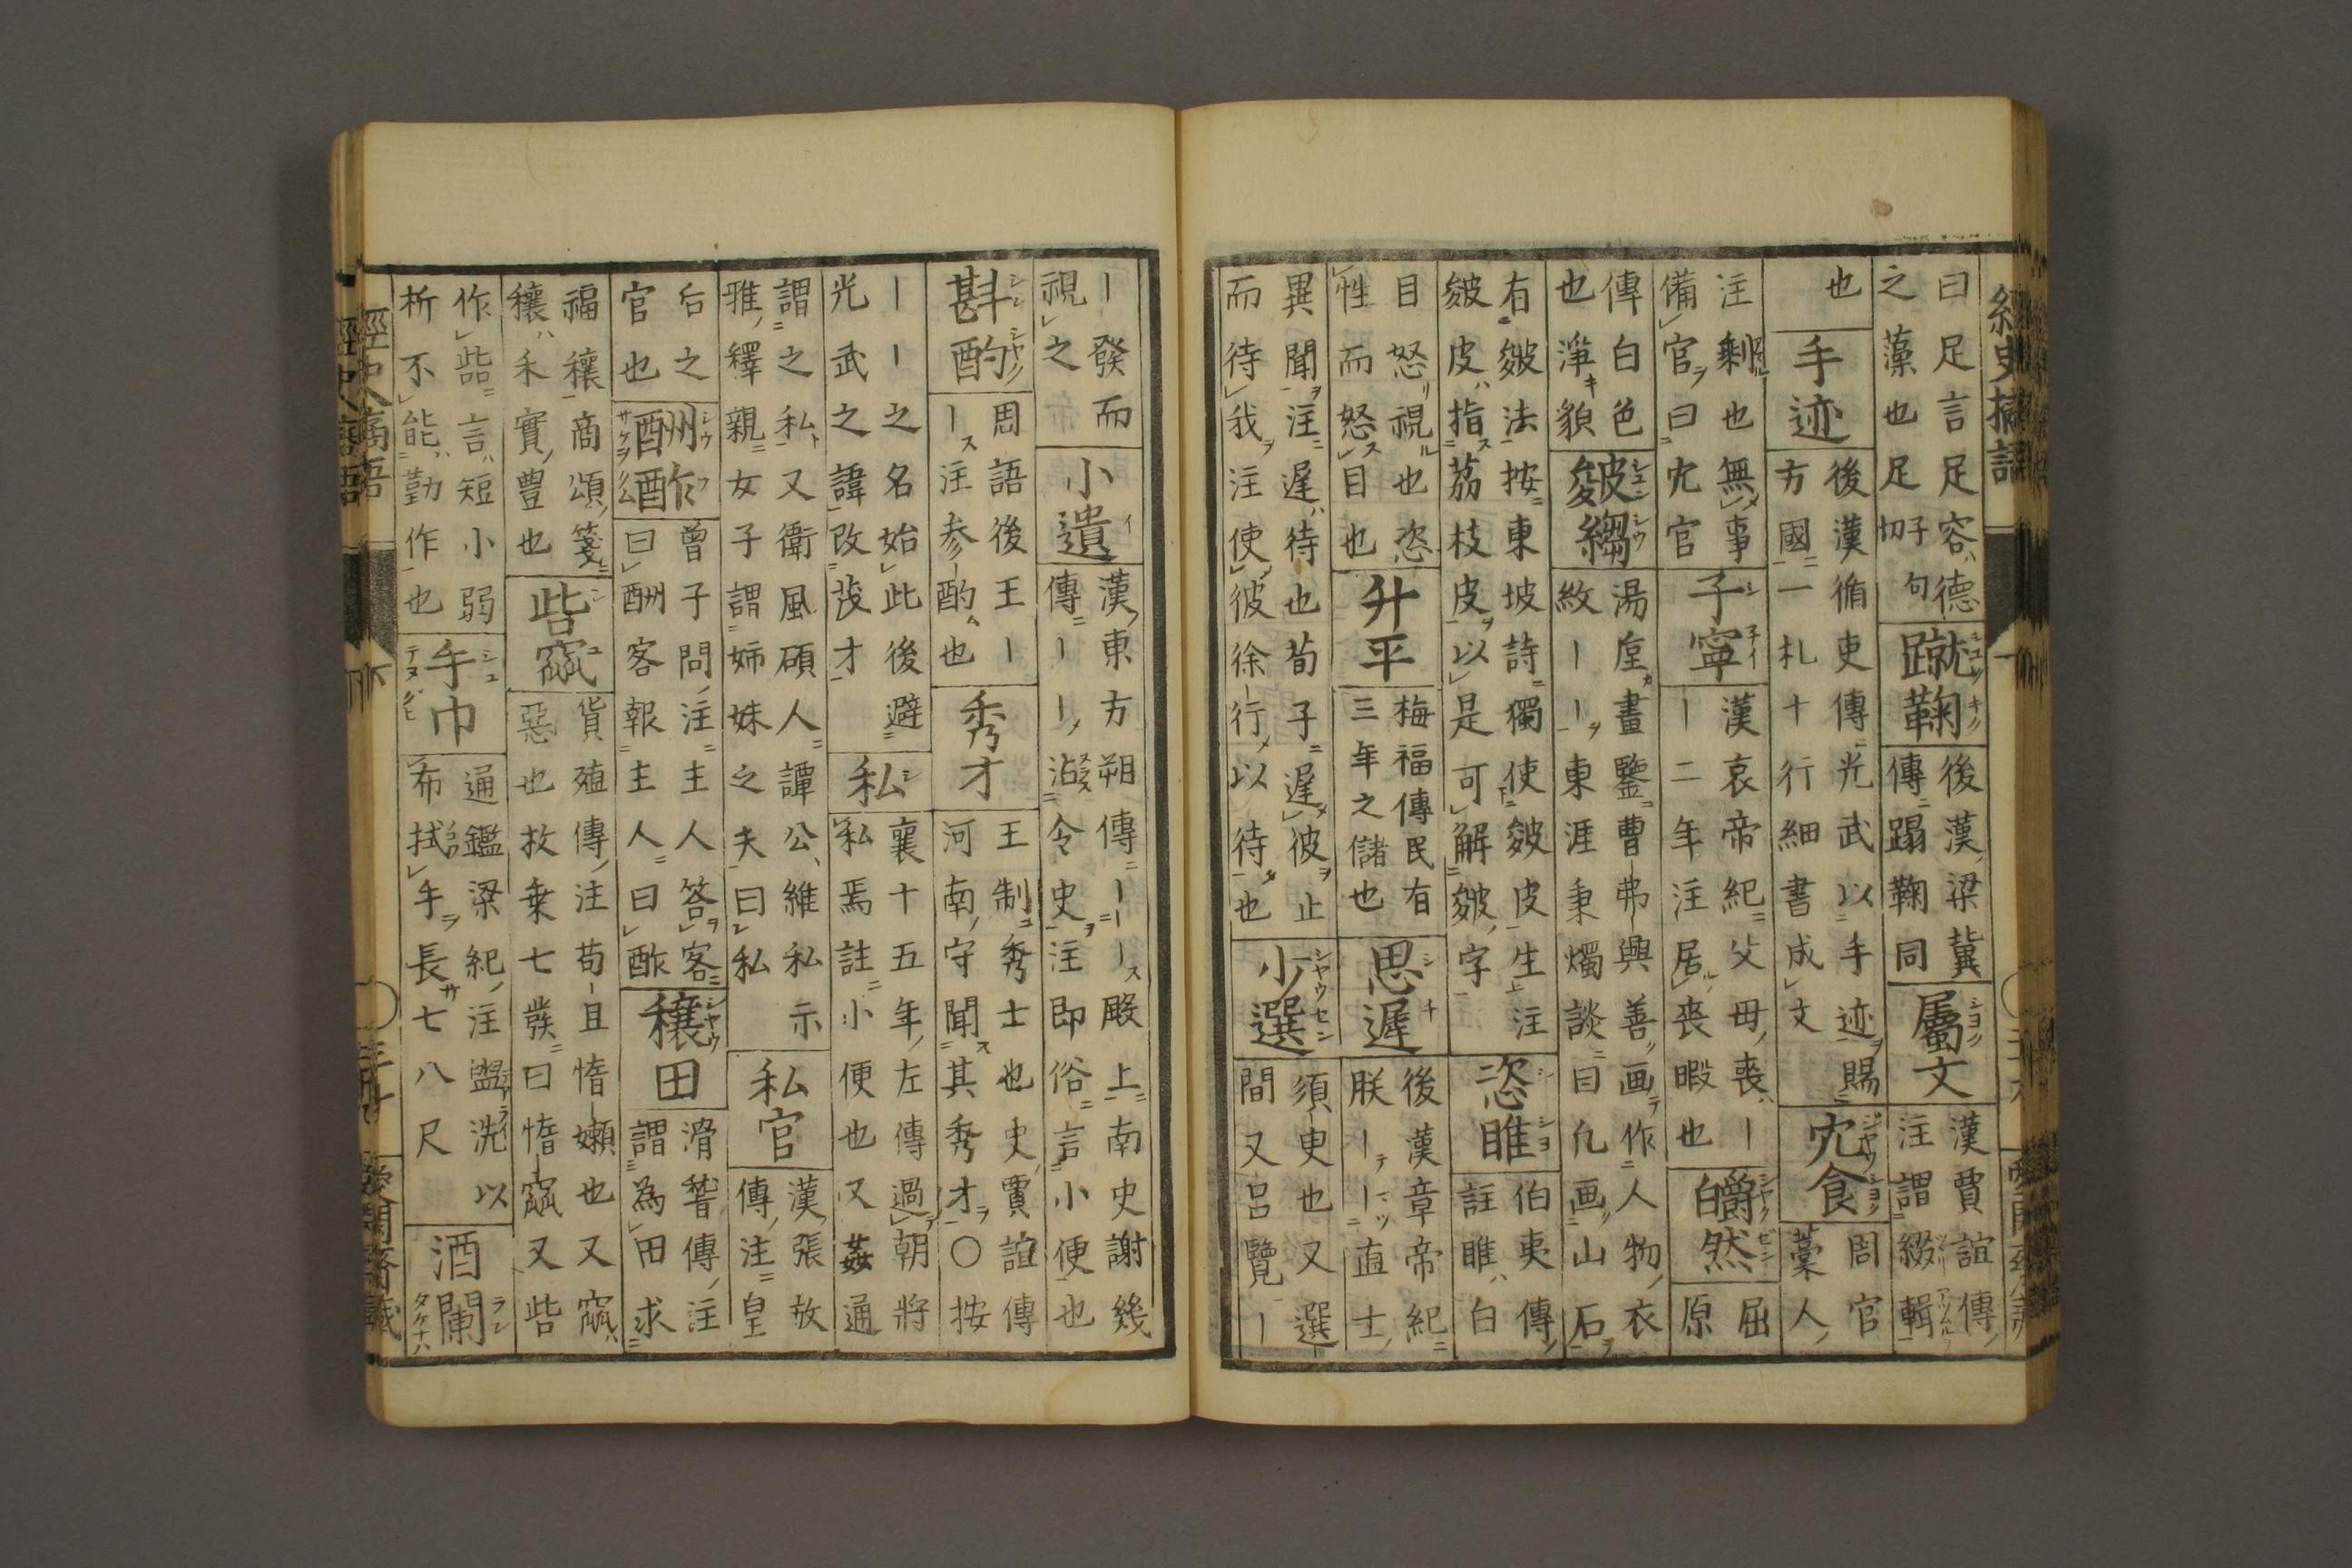 經史摘語
曰足言足容德
之藻也足切子句
蹴鞠
後漢梁冀
傳蹋鞠同
屬文
漢賈誼傳
注謂綴輯
也
手迹
後漢循吏傳光武以手迹賜
方國一札十行細書成文
冗食
周官
藁人
注剩也無事
備官曰冗官
子寧
漢哀帝紀父母喪ー
ー二年注居喪暇也
皭然
屈
原
傳白色
也淨貌
皴縐
湯垕畫鑒曹弗興善画作人物衣
紋ーー東涯秉燭談曰凢画山石
有皴法按東坡詩獨使皴皮生注
皴皮指荔枝皮以是可解皴字
恣睢
伯夷傳
註睢白
目怒視也恣
性而怒目也
升平
梅福傳民有
三年之儲也
思遲
後漢章帝紀
朕ーー直士
異聞注遲待也荀子遲彼止
而待我注使彼徐行以待也
少選
須臾也又選
間又呂覽ー
ー發而
視之
小遺
漢東方朔傳ーー殿上南史謝幾
傳ーー沾令史注即俗言小便也
斟酌
周語後王ー
ー注參酌也
秀才
王制秀士也史賈誼傳
河南守聞其秀才〇按
ーー之名始此後避
光武之諱改茂才
私
襄十五年左傳過朝將
私焉註小便也又姦通
謂之私又衛風碩人譚公維私示
雅釋親女子謂姊妹之夫曰私
私官
漢張放
傳注皇
后之
官也
酬酢
曾子問注主人答客
曰酬客報主人曰酢
穰田
滑稽傳注
謂為田求
福穰商頌箋
穰禾實豊也
呰窳
貨殖傳注苟且惰嬾也又窳
惡也枚乗七發曰惰窳又呰
作呰言短小弱
析不能勤作也
手巾
通鑑梁紀注盥洗以
布拭手長七八尺
酒闌
經史摘語
下